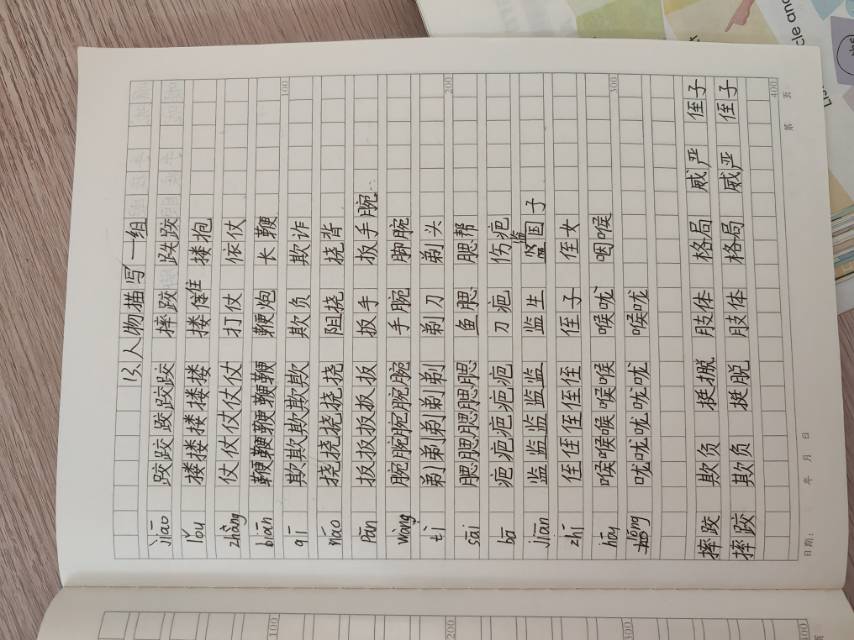 13、人物描写一组
jiāo 跤跤跤跤跤 摔跤 跌跤
lǒu 搂搂搂搂搂 搂抱
zhàng 仗仗仗仗仗 打仗 依仗
biān 鞭鞭鞭鞭鞭 鞭炮 长鞭
100
qī 欺欺欺欺欺 欺负 欺诈
náo 挠挠挠挠挠 阻挠 挠背
扳扳扳扳扳 扳手 扳手腕
腕腕腕腕腕 手腕 脚腕
tì 剃剃剃剃剃 剃刀 剃头
200
sāi 腮腮腮腮腮 鱼腮 腮帮
bā 疤疤疤疤疤 刀疤 伤疤
jiān 监监监监监 监生 监国子
zhí 侄侄侄侄侄 侄子 侄女
hóu 喉喉喉喉喉 喉咙 咽喉
300
咙咙咙咙咙 喉咙
摔跤 欺负 挺脱 肢体 格局 威严 侄子
摔跤 欺负 挺脱 肢体 格局 威严 侄子
400
日期： 年 月 日 第 页
100
200
300
400